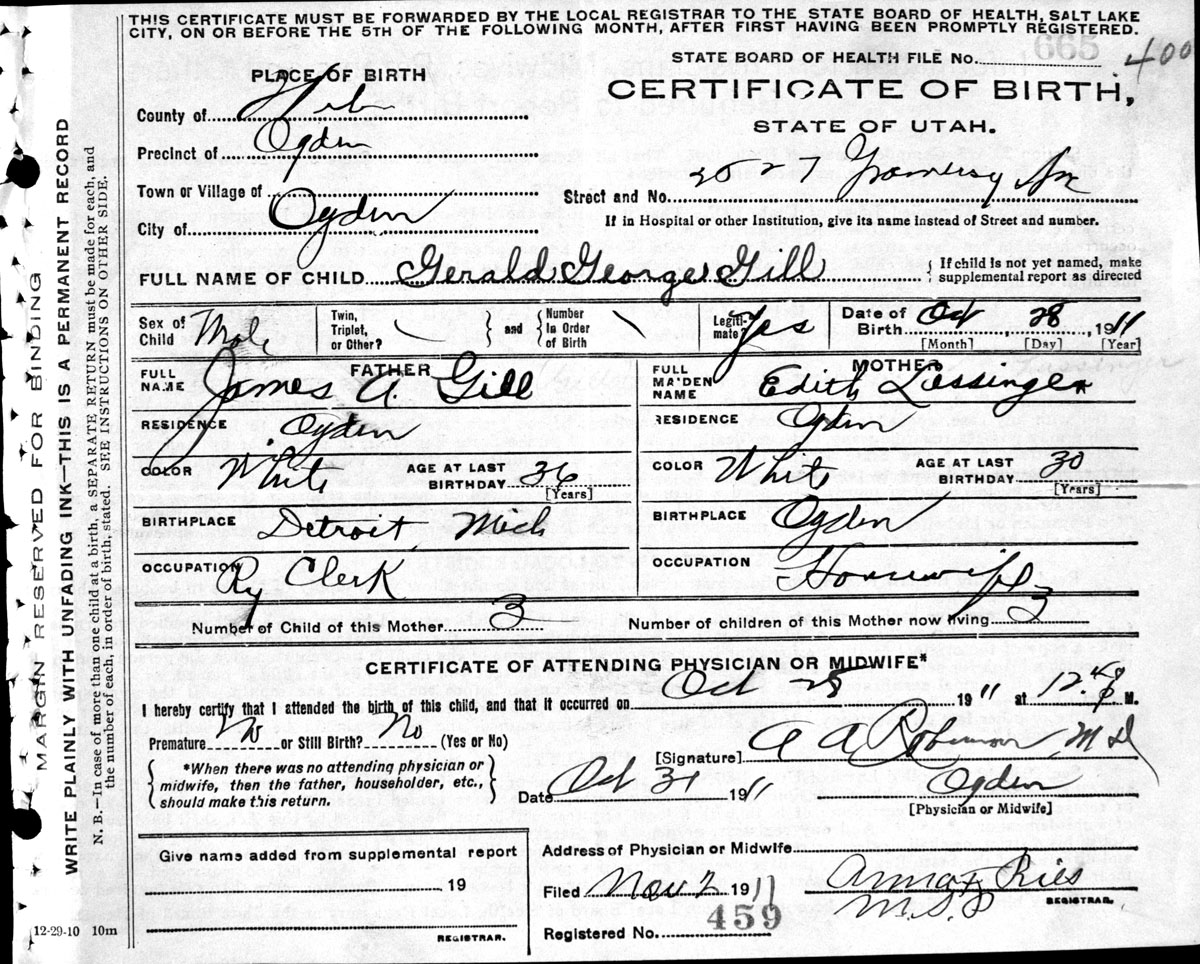 THIS CERTIFICATE MUST BE FORWARDED BY THE LOCAL REGISTRAR TO THE STATE BOARD OF HEALTH, SALT LAKE
CITY, ON OR BEFORE THE 5TH OF THE FOLLOWING MONTH, AFTER FIRST HAVING BEEN PROMPTLY REGISTERED.
STATE BOARD OF HEALTH FILE No. 665 400
CERTIFICATE OF BIRTH,
STATE OF UTAH.
PLACE OF BIRTH
County of
Precinct of Ogden
Town or Village of
City of Ogden
Street and No. Ave
If in Hospital or other Institution, give its name instead of Street and number.
FULL NAME OF CHILD Gerald George Gill
If child is not yet named, make supplemental report as directed
Sex of Child Male
Twin, Triplet, or Other?
and
Number In Order of Birth
Legiti-mate? Yes
Date of Birth Oct, 28, 1911
[Month] [Day] [Year]
FATHER
FULL NAME James A. Gill
RESIDENCE Ogden
COLOR White AGE AT LAST BIRTHDAY 36
[Years]
BIRTHPLACE Detroit, Mich
OCCUPATION Ry Clerk
MOTHER
FULL MAIDEN NAME Edith Lessinger
RESIDENCE Ogden
COLOR White AGE AT LAST BIRTHDAY 30
[Years]
BIRTHPLACE Ogden
OCCUPATION Housewife
Number of Child of this Mother 3 Number of children of this Mother now living 3
CERTIFICATE OF ATTENDING PHYSICIAN OR MIDWIFE*
I hereby certify that I attended the birth of this child, and that it occurred on Oct 28 1911 at M.
Premature No or Still Birth? No (Yes or No)
[Signature] A A Robinson, M D
*When there was no attending physician or
midwife, then the father, householder, etc.,
should make this return.
Date Oct 31 1911 Ogden
[Physician or Midwife]
Give name added from supplemental report
19
REGISTRAR.
Address of Physician or Midwife
Filed Nov 2 1911 Anna Ries
REGISTRAR.
Registered No. 459
12-29-10 10m
MARGIN RESERVED FOR BINDING
WRITE PLAINLY WITH UNFADING INK—THIS IS A PERMANENT RECORD
N. B.—In case of more than one child at a birth, a SEPARATE RETURN must be made for each, and
the number of each, in order of birth, stated. SEE INSTRUCTIONS ON OTHER SIDE.